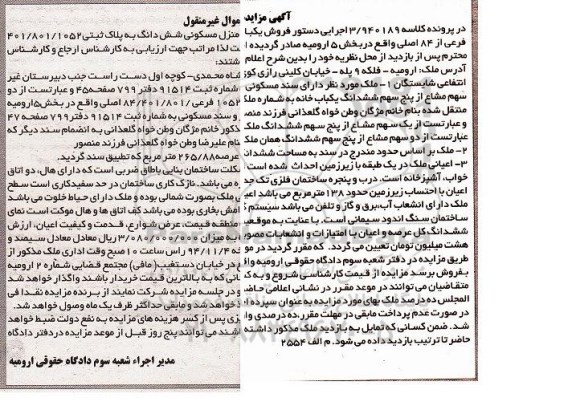 آگهی مزایده اموال غیرمنقول
در پرونده کلاسه ۳/۹۴۰۱۸۹ اجرایی دستور فروش یکباب منزل مسکونی شش دانگ به پلاک ثبتی ۴۰۱/۸۰۱/۱۰۵۲
فرعی از ۸۴ اصلی واقع در بخش ۵ ارومیه صادر گردیده است لذا مراتب جهت ارزیابی به کارشناس ارجاع و کارشناس
محترم پس از بازدید از محل نظریه خود را بدین شرح اعلام داشتند:
آدرس ملک: ارومیه - فلکه ۹ پله - خیابان کلینی رازی کوی شاه محمدی- کوچه اول دست راست جنب دبیرستان غیر
انتفاعی شایستگان ۱- ملک مورد نظر دارای سند مسکونی به شماره ثبت ۹۱۵۱۴ دفتر ۷۹۹ صفحه ۴۵ و عبارتست از دو
سهم مشاع از پنج سهم ششدانگ یکباب خانه به شماره ملک ۱۰۵۲ فرعی ۸۴/۴۰۱/۸۰۱ اصلی واقع در بخش ۵ ارومیه
منتقل شده بنام خانم مژگان وطن خواه گلعذانی فرزند منصور و سند مسکونی به شماره ثبت ۹۱۵۱۴ دفتر ۷۹۹ صفحه ۴۷
و عبارتست از یک سهم مشاع از پنج سهم ششدانگ ملک مذکور خانم مژگان وطن خواه گلعذانی به انضمام سند دیگر که
عبارتست از دو سهم مشاع از پنج سهم ششدانگ همان ملک بنام علیرضا وطن خواه گلعذانی فرزند منصور
۲- ملک بر اساس حدود مندرج در سند به مساحت ششدانگ عرصه ۲۶۵/۸۸ متر مربع که تطبیق سند گردید.
۳- اعیانی ملک در یک طبقه با زیرزمین احداث شده است
اسکلت ساختمان بنایی باطاق ضربی است که دارای هال، دو اتاق
خواب، آشپزخانه است. درب و پنجره ساختمان فلزی تک
می باشد. نازک کاری ساختمان در حد سفیدکاری است سطح
اعیان با احتساب زیرزمین حدود ۱۳۸ مترمربع می باشد
ملک بصورت شمالی بوده و ملک دارای حیاط خلوت می باشد
ملک دارای انشعاب آب، برق و گاز و تلفن می باشد سیستم
بخاری بوده و می باشد کف اتاق ها و هال موکت است نمای
ساختمان سنگ اندود سیمانی است. با عنایت به موقعیت
منطقه قیمت، عرض و گذر، قدمت و کیفیت اعیان، ارزش
ششدانگ کل عرصه و اعیان با امتیازات و انشعابات منصوبه به میزان ۳/۰۸۰/۰۰۰/۰۰۰ ریال معادل سیصد و
هشت میلیون تومان تعیین می گردد. که مقرر گردید در مورخه ۹۴/۱۱/۴ راس ساعت ۱۰ صبح وقت اداری ملک مذکور از
طریق مزایده در دفتر شعبه سوم دادگاه حقوقی ارومیه واقع در خیابان دستغیب (مافی) مجتمع قضایی شماره ۲ ارومیه
بفروش برسد مزایده از قیمت کارشناسی شروع و به کسانی که به بالاترین قیمت خریدار باشند واگذار خواهد شد
متقاضیان می توانند در موعد مقرر در نشانی اعلامی حاضر و در جلسه مزایده شرکت نمایند از برنده مزایده نقدا فی
المجلس ده درصد ملک بهای مورد مزایده به عنوان سپرده اخذ خواهد شد و مابقی حداکثر ظرف یک ماه وصول خواهد شد.
در صورت عدم پرداخت مابقی در مهلت مقرر، ده درصد پس از کسر هزینه های مزایده به نفع دولت ضبط خواهد
شد. ضمن کسانی که تمایل به بازدید ملک مذکور داشته باشند می توانند پنج روز قبل از موعد مزایده در دفتر دادگاه
حاضر تا ترتیب بازدید داده می شود. م الف ۲۵۵۴
مدیر اجراء شعبه سوم دادگاه حقوقی ارومیه